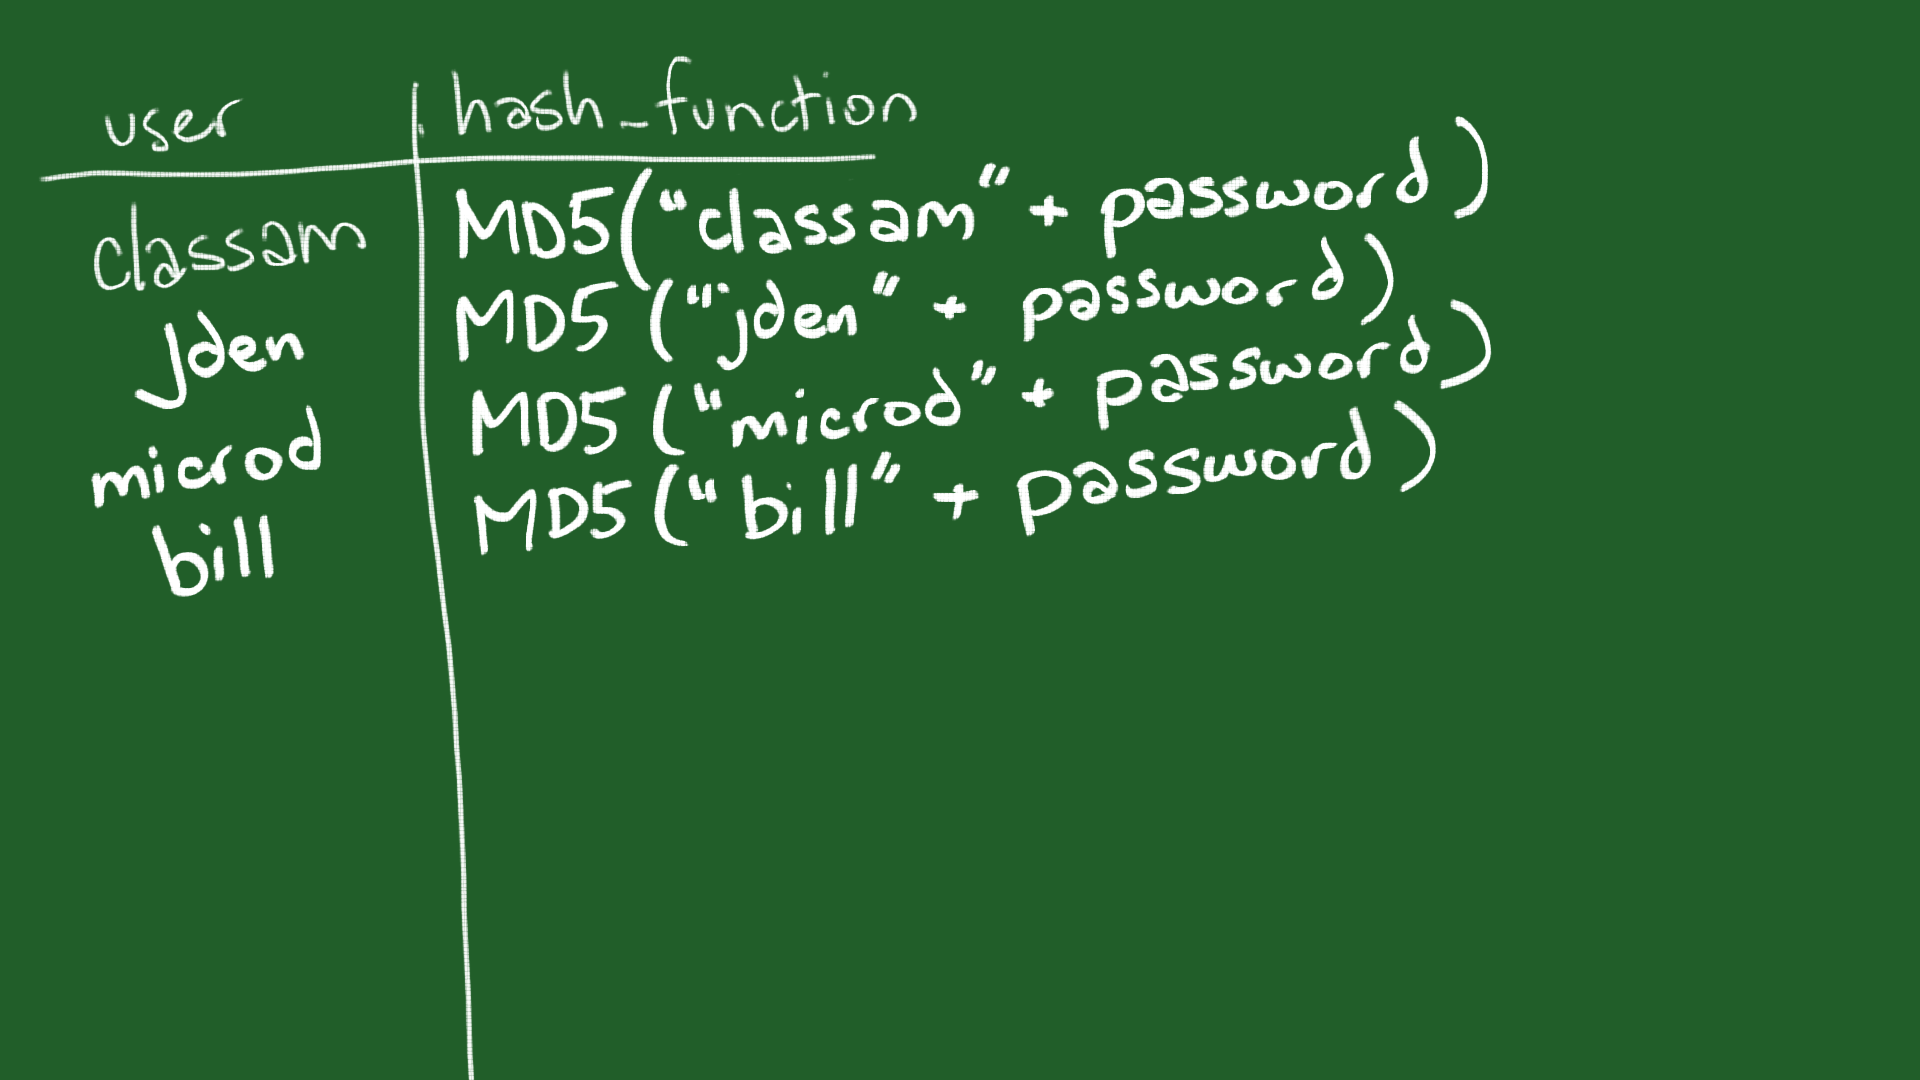 user hash_function
classam MD5("classam" + password)
jden MD5("jden" + password)
microd MD5("microd" + password)
bill MD5("bill" + password)